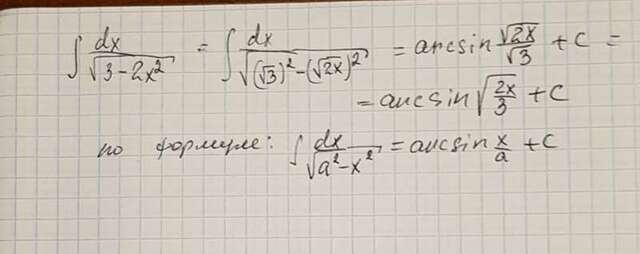 ∫ dx/√(3-2x²) = ∫ dx/√((√3)²-(√2x)²) = arcsin √2x/√3 + C =
= arcsin √(2x/3) + C
по формуле: ∫ dx/√(a²-x²) = arcsin x/a + C